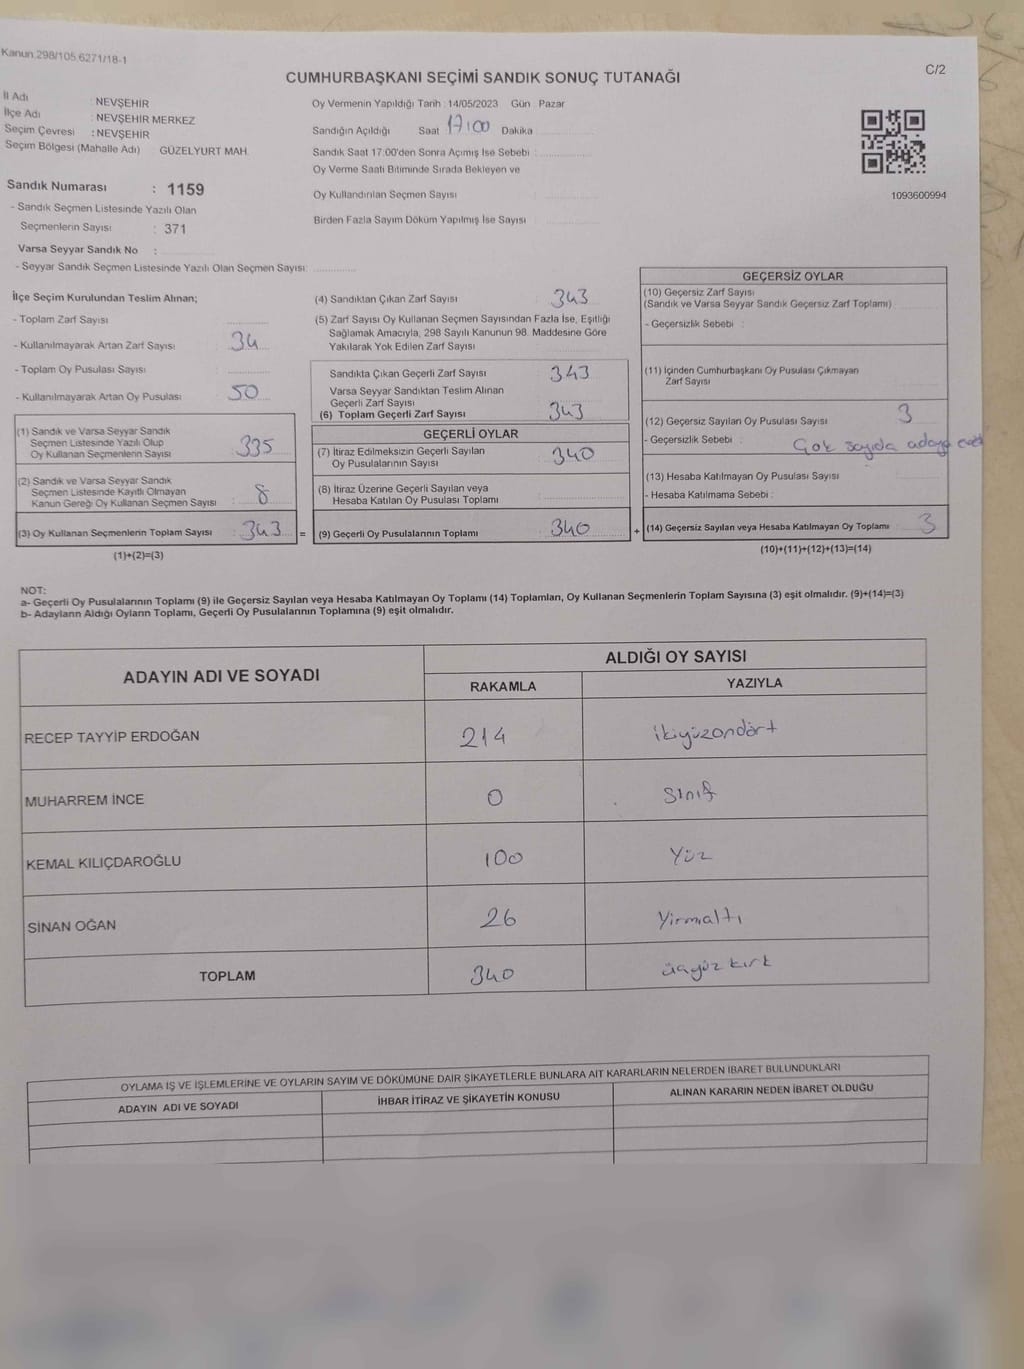 Kanun.298/105.6271/18-1
C/2
CUMHURBAŞKANI SEÇİMİ SANDIK SONUÇ TUTANAĞI
İl Adı : NEVŞEHİR
İlçe Adı : NEVŞEHİR MERKEZ
Seçim Çevresi : NEVŞEHİR
Seçim Bölgesi (Mahalle Adı) GÜZELYURT MAH.
Sandık Numarası : 1159
- Sandık Seçmen Listesinde Yazılı Olan
Seçmenlerin Sayısı : 371
Varsa Seyyar Sandık No :
- Seyyar Sandık Seçmen Listesinde Yazılı Olan Seçmen Sayısı:
Oy Vermenin Yapıldığı Tarih : 14/05/2023 Gün : Pazar
Sandığın Açıldığı Saat 17:00 Dakika
Sandık Saat 17:00'den Sonra Açımış İse Sebebi :
Oy Verme Saati Bitiminde Sırada Bekleyen ve
Oy Kullandırılan Seçmen Sayısı
Birden Fazla Sayım Döküm Yapılmış İse Sayısı
1093600994
İlçe Seçim Kurulundan Teslim Alınan;
- Toplam Zarf Sayısı
- Kullanılmayarak Artan Zarf Sayısı 34
- Toplam Oy Pusulası Sayısı
- Kullanılmayarak Artan Oy Pusulası 50
(1) Sandık ve Varsa Seyyar Sandık
Seçmen Listesinde Yazılı Olup
Oy Kullanan Seçmenlerin Sayısı : 335
(2) Sandık ve Varsa Seyyar Sandık
Seçmen Listesinde Kayıtlı Olmayan
Kanun Gereği Oy Kullanan Seçmen Sayısı : 8
(3) Oy Kullanan Seçmenlerin Toplam Sayısı : 343 =
(1)+(2)=(3)
(4) Sandıktan Çıkan Zarf Sayısı 343
(5) Zarf Sayısı Oy Kullanan Seçmen Sayısından Fazla İse, Eşitliği
Sağlamak Amacıyla, 298 Sayılı Kanunun 98. Maddesine Göre
Yakılarak Yok Edilen Zarf Sayısı
Sandıkta Çıkan Geçerli Zarf Sayısı 343
Varsa Seyyar Sandıktan Teslim Alınan
Geçerli Zarf Sayısı
(6) Toplam Geçerli Zarf Sayısı 343
GEÇERLİ OYLAR
(7) İtiraz Edilmeksizin Geçerli Sayılan
Oy Pusulalarının Sayısı 340
(8) İtiraz Üzerine Geçerli Sayılan veya
Hesaba Katılan Oy Pusulası Toplamı
(9) Geçerli Oy Pusulalarının Toplamı 340 +
GEÇERSİZ OYLAR
(10) Geçersiz Zarf Sayısı
(Sandık ve Varsa Seyyar Sandık Geçersiz Zarf Toplamı)
- Geçersizlik Sebebi :
(11) İçinden Cumhurbaşkanı Oy Pusulası Çıkmayan
Zarf Sayısı
(12) Geçersiz Sayılan Oy Pusulası Sayısı 3
- Geçersizlik Sebebi : Çok sayıda adaya evet
(13) Hesaba Katılmayan Oy Pusulası Sayısı
- Hesaba Katılmama Sebebi :
(14) Geçersiz Sayılan veya Hesaba Katılmayan Oy Toplamı 3
(10)+(11)+(12)+(13)=(14)
NOT:
a- Geçerli Oy Pusulalarının Toplamı (9) ile Geçersiz Sayılan veya Hesaba Katılmayan Oy Toplamı (14) Toplamları, Oy Kullanan Seçmenlerin Toplam Sayısına (3) eşit olmalıdır. (9)+(14)=(3)
b- Adayların Aldığı Oyların Toplamı, Geçerli Oy Pusulalarının Toplamına (9) eşit olmalıdır.
ADAYIN ADI VE SOYADI ALDIĞI OY SAYISI
RAKAMLA YAZIYLA
RECEP TAYYİP ERDOĞAN 214 ikiyüzondört
MUHARREM İNCE 0 Sınıf
KEMAL KILIÇDAROĞLU 100 Yüz
SİNAN OĞAN 26 Yirmialtı
TOPLAM 340 üçyüz kırk
OYLAMA İŞ VE İŞLEMLERİNE VE OYLARIN SAYIM VE DÖKÜMÜNE DAİR ŞİKAYETLERLE BUNLARA AİT KARARLARIN NELERDEN İBARET BULUNDUKLARI
ADAYIN ADI VE SOYADI İHBAR İTİRAZ VE ŞİKAYETİN KONUSU ALINAN KARARIN NEDEN İBARET OLDUĞU